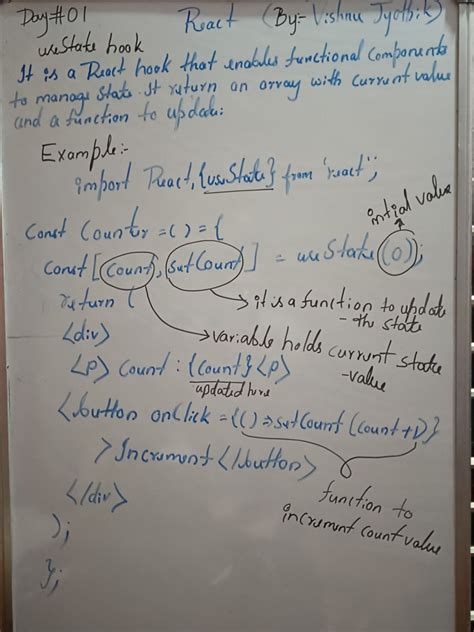 Day#01 React (By:- Vishnu Jyothik)
useState hook
It is a React hook that enables functional Components
to manage state. It return an array with current value
and a function to update.
Example:-
import React, {useState} from 'react';
intial value
Const Counter = () = {
Const [count, setCount] = useState(0);
return (
it is a function to update
- the state
<div>
variable holds current state
- value
<p> Count : {count} <p>
updated here
<button onClick = {() => setCount (count+1)}
> Increment </button>
function to
increment count value
</div>
);
};